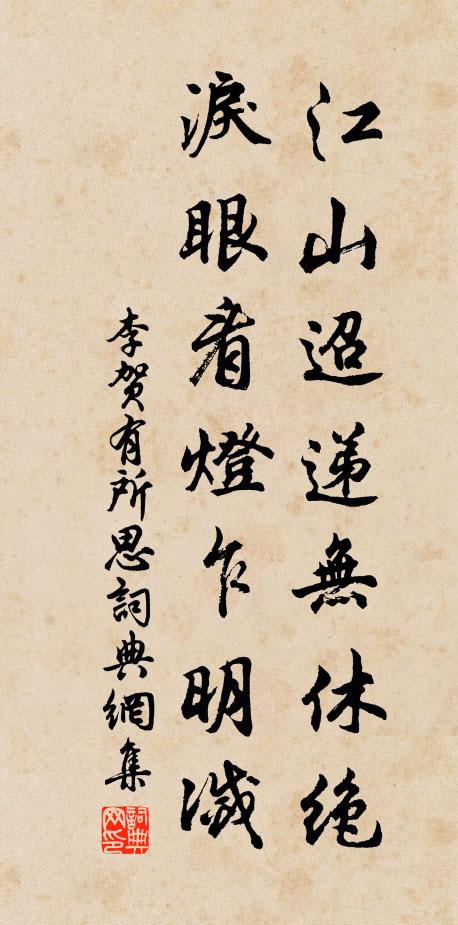 江山迢递無休绝
淚眼看燈乍明滅
李贺有所思詞典網集
詞典网印